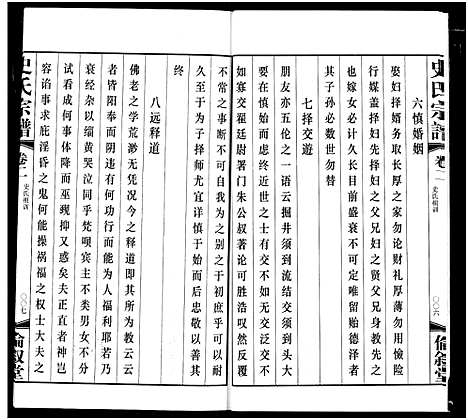 史氏宗譜
卷二
史氏祖訓
〇〇六
倫敘堂
六慎婚姻
娶妇择婚务取长厚之家勿论财礼厚薄勿用憸险
行媒盖择妇先择妇之父兄妇之贤父兄贤者德必
嫁女必计久长目前衰盛不足言也勿忽贻德泽者
其子孙必数世勿替
七择交遊
朋友亦五伦之一语云掘井须到流结交须到头言
在慎始而虑终近世之士有交不如无交
如寡交翟廷尉署门朱公叔著论可胜浩叹然子弟
不常之事断不可自我为戎首或不得
于已须为子择师尤宜详慎于前而后忠敬以善其
终
八远释道
佛老之学荒渺无凭况今之释道即其所教云云
者皆阳奉而阴违有何功行而能为人福利耶若乃
衰绖杂以缁黄哭泣同乎梵呗宾主不类男女不分
试看成何事体降而巫觋抑又惑矣夫正直者神岂
容谄事求庇淫昏之鬼何能操祸福之权士大夫之
史氏宗譜
卷二
史氏祖訓
〇〇七
倫敘堂